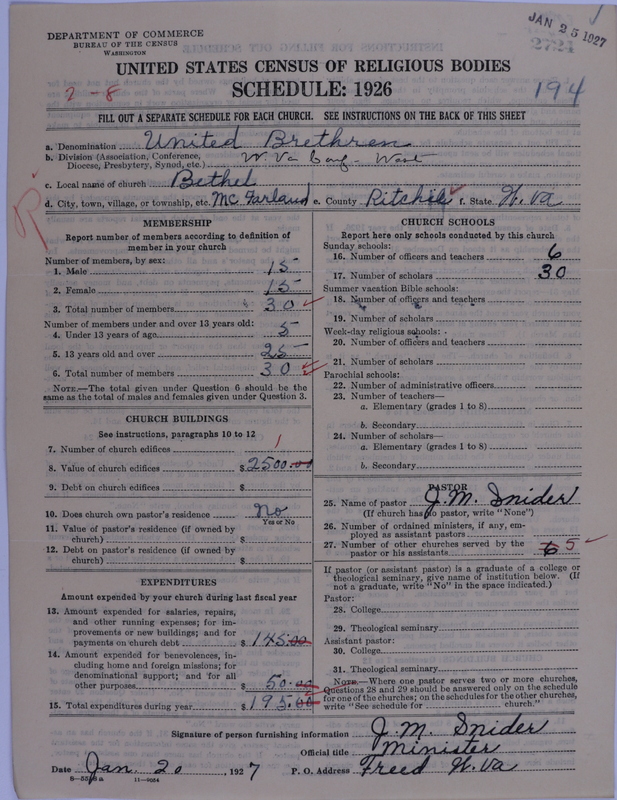 JAN 25 1927
2724
DEPARTMENT OF COMMERCE
BUREAU OF THE CENSUS
WASHINGTON
UNITED STATES CENSUS OF RELIGIOUS BODIES
SCHEDULE: 1926
2-8
194
FILL OUT A SEPARATE SCHEDULE FOR EACH CHURCH. SEE INSTRUCTIONS ON THE BACK OF THIS SHEET
a. Denomination United Brethren
b. Division (Association, Conference, Diocese, Presbytery, Synod, etc.) W. Va Conf - West
c. Local name of church Bethel
d. City, town, village, or township, etc. McFarland e. County Ritchie f. State W. Va
MEMBERSHIP
Report number of members according to definition of
member in your church
Number of members, by sex:
1. Male 15
2. Female 15
3. Total number of members 30
Number of members under and over 13 years old:
4. Under 13 years of age 5
5. 13 years old and over 25
6. Total number of members 30
NOTE.—The total given under Question 6 should be the
same as the total of males and females given under Question 3.
CHURCH BUILDINGS
See instructions, paragraphs 10 to 12
7. Number of church edifices 1
8. Value of church edifices $2500.00
9. Debt on church edifices $
10. Does church own pastor's residence? No
Yes or No
11. Value of pastor's residence (if owned by
church) $
12. Debt on pastor's residence (if owned by
church) $
EXPENDITURES
Amount expended by your church during last fiscal year
13. Amount expended for salaries, repairs,
and other running expenses; for im-
provements or new buildings; and for
payments on church debt $145.00
14. Amount expended for benevolences, in-
cluding home and foreign missions; for
denominational support; and for all
other purposes $50.00
15. Total expenditures during year $195.00
CHURCH SCHOOLS
Report here only schools conducted by this church
Sunday schools:
16. Number of officers and teachers 6
17. Number of scholars 30
Summer vacation Bible schools:
18. Number of officers and teachers
19. Number of scholars
Week-day religious schools:
20. Number of officers and teachers
21. Number of scholars
Parochial schools:
22. Number of administrative officers
23. Number of teachers—
a. Elementary (grades 1 to 8)
b. Secondary
24. Number of scholars—
a. Elementary (grades 1 to 8)
b. Secondary
PASTOR
25. Name of pastor J. M. Snider
(If church has no pastor, write "None")
26. Number of ordained ministers, if any, em-
ployed as assistant pastors
27. Number of other churches served by the
pastor or his assistants 6 5
If pastor (or assistant pastor) is a graduate of a college or
theological seminary, give name of institution below. (If
not a graduate, write "No" in the space indicated.)
Pastor:
28. College
29. Theological seminary
Assistant pastor:
30. College
31. Theological seminary
NOTE.—Where one pastor serves two or more churches,
Questions 28 and 29 should be answered only on the schedule
for one of the churches; on the schedules for the other churches,
write "See schedule for church."
Signature of person furnishing information J. M. Snider
Official title Minister
Date Jan. 20, 1927 P. O. Address Freed W. Va
11—9034